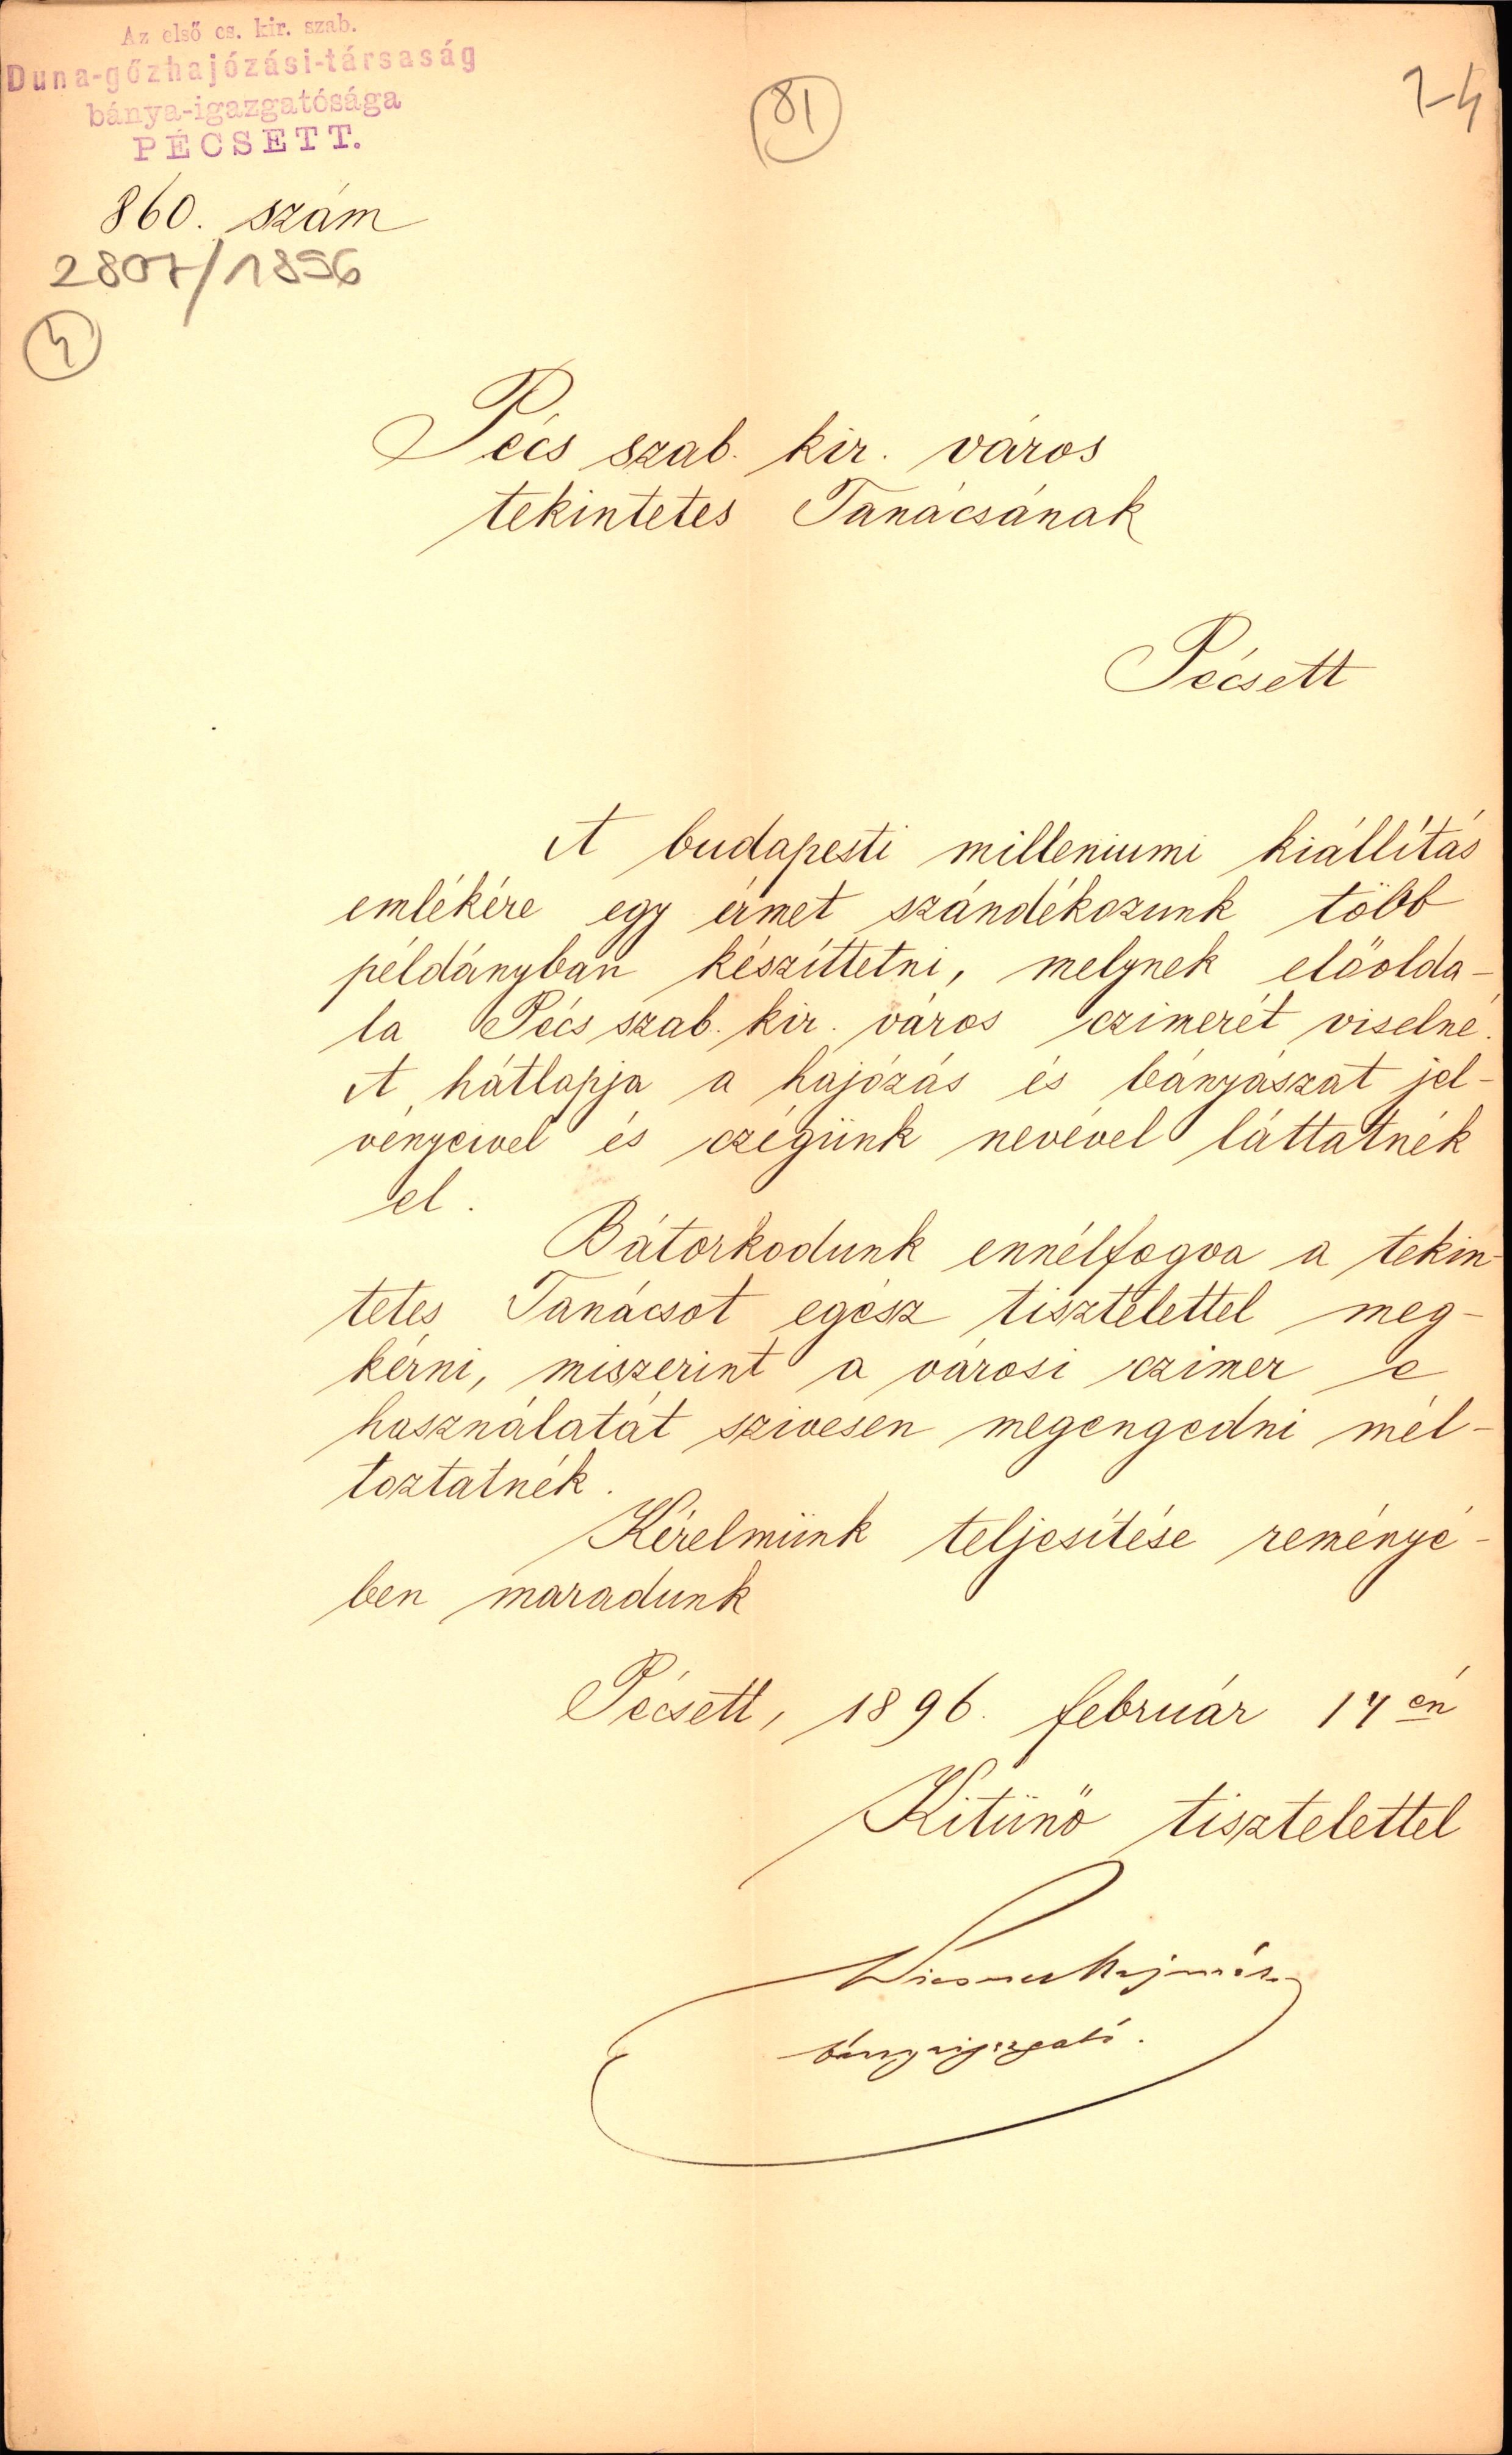 Az első cs. kir. szab.
Duna-gőzhajózási-társaság
bánya-igazgatósága
PÉCSETT.
81
860. szám
2807/1896
4
Pécs szab. kir. város
tekintetes Tanácsának
Pécsett
A budapesti milleniumi kiállítás
emlékére egy érmet szándékozunk több
példányban készíttetni, melynek előolda-
la Pécs szab. kir. város czimerét viselné.
A hátlapja a hajózás és bányászat jel-
vényeivel és czégünk nevével láttatnék
el.
Bátorkodunk ennélfogva a tekin-
tetes Tanácsot egész tisztelettel meg-
kérni, miszerint a városi czimer e
használatát szivesen megengedni mél-
toztatnék.
Kérelmünk teljesítése reményé-
ben maradunk
Pécsett, 1896. február 14én
Kitünő tisztelettel
Wiesner Rajmár
bányaigazgató.